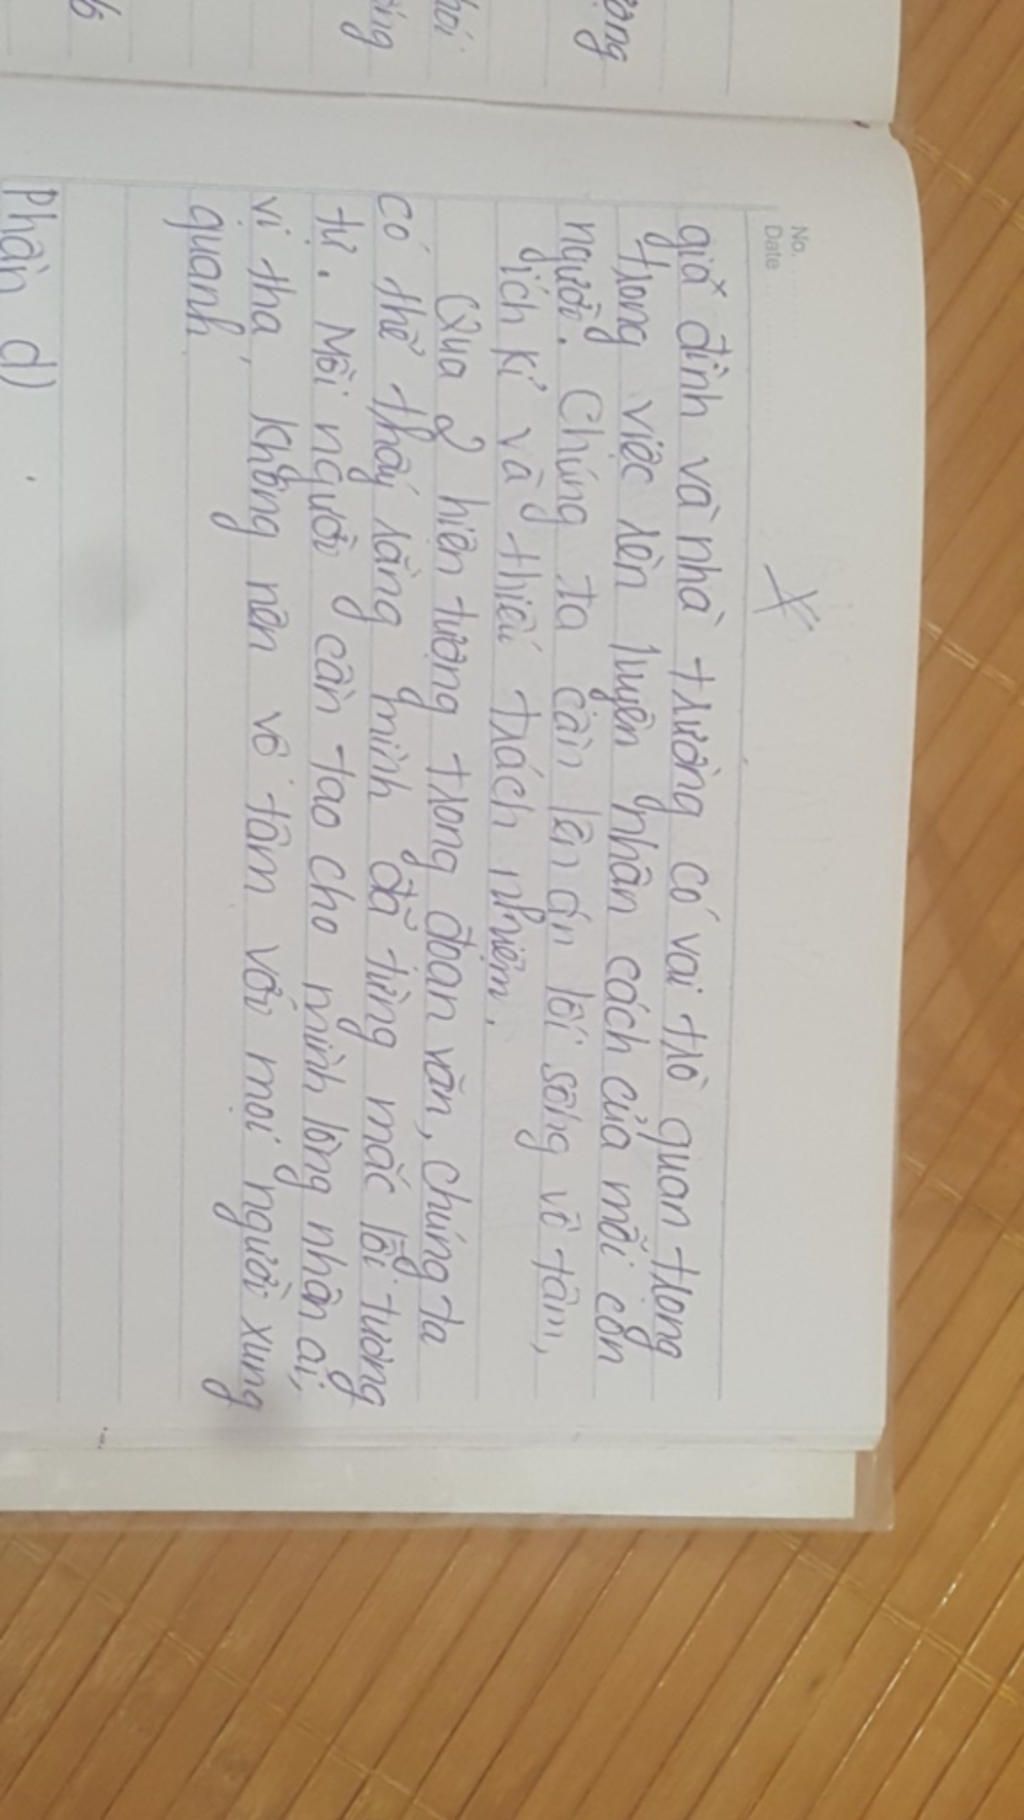 No.
Date
giả đình và nhà trường có vai trò quan trong
trong việc rèn luyện nhân cách của mỗi con
người. Chúng ta cần lên án lối sống vô tâm,
ích kỉ và thiếu trách nhiệm.
Qua 2 hiện tượng trong đoạn văn, chúng ta
có thể thấy rằng mình đã từng mắc lỗi tương
tự. Mỗi người cần tạo cho mình lòng nhân ái,
vị tha, không nên vô tâm với mọi người xung
quanh
Phần d)